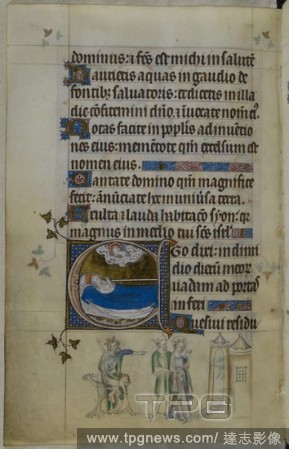 dominus: ⁊ fc̄s est michi in salutē
Haurietis aquas in gaudio de
fontib; saluatoris: ⁊ dicetis in illa
die cōfitemini dn̄o, ⁊ inuocate nom̄ ei⁹
Notas facite in popl̄is adinuētio
nes eius: mementote qm̄ excelsum est
nomen eius.
Cantate domino qm̄ magnifice
fecit: ānūciate hec in uniūsa terra.
Exulta ⁊ lauda habitacō syon: q̄
magnus in medio tui sc̄s isr̄l.
Ego dixi: in dimi
dio dierū meoȝ
uadam ad portas
inferi
Quesiui residuū
TPG
www.tpgnews.com/ 達志影像